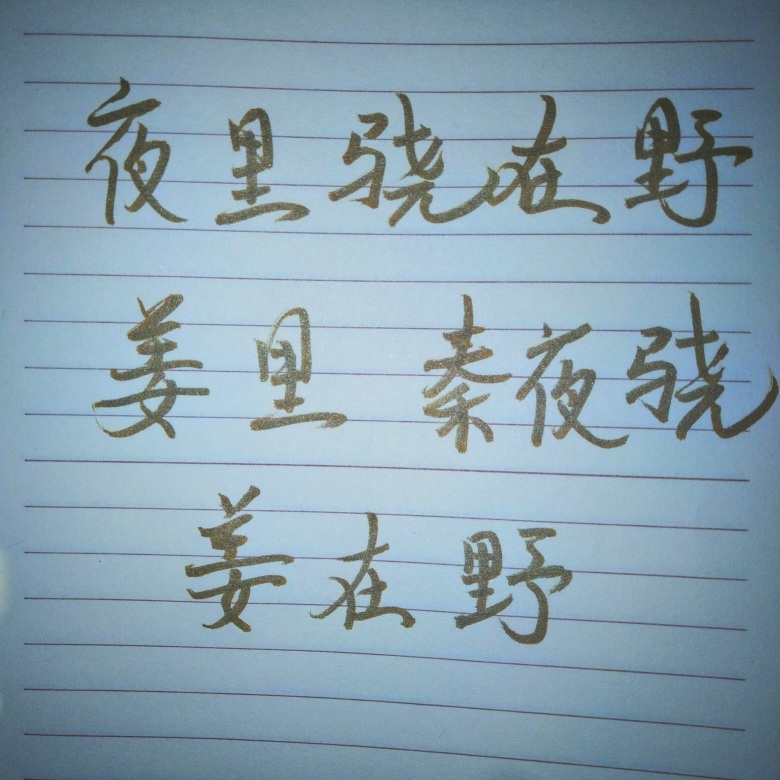 夜里骁在野
姜里 秦夜骁
姜在野